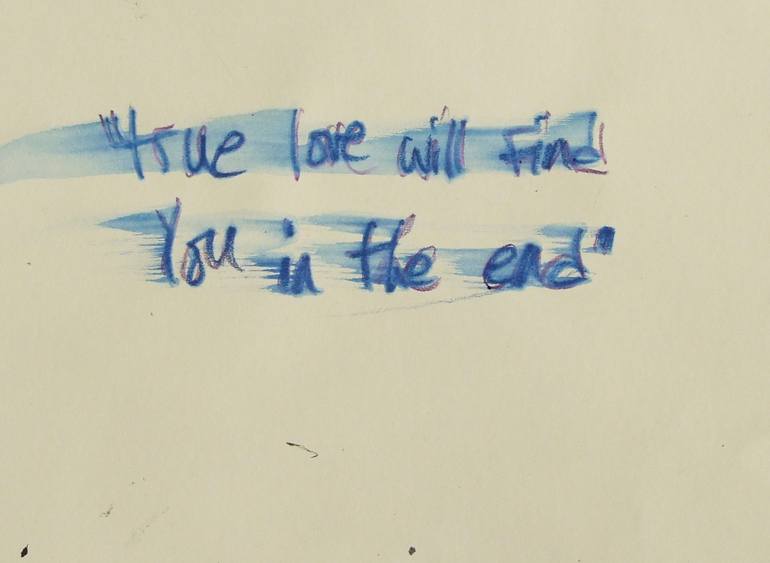 "true love will Find
You in the end"